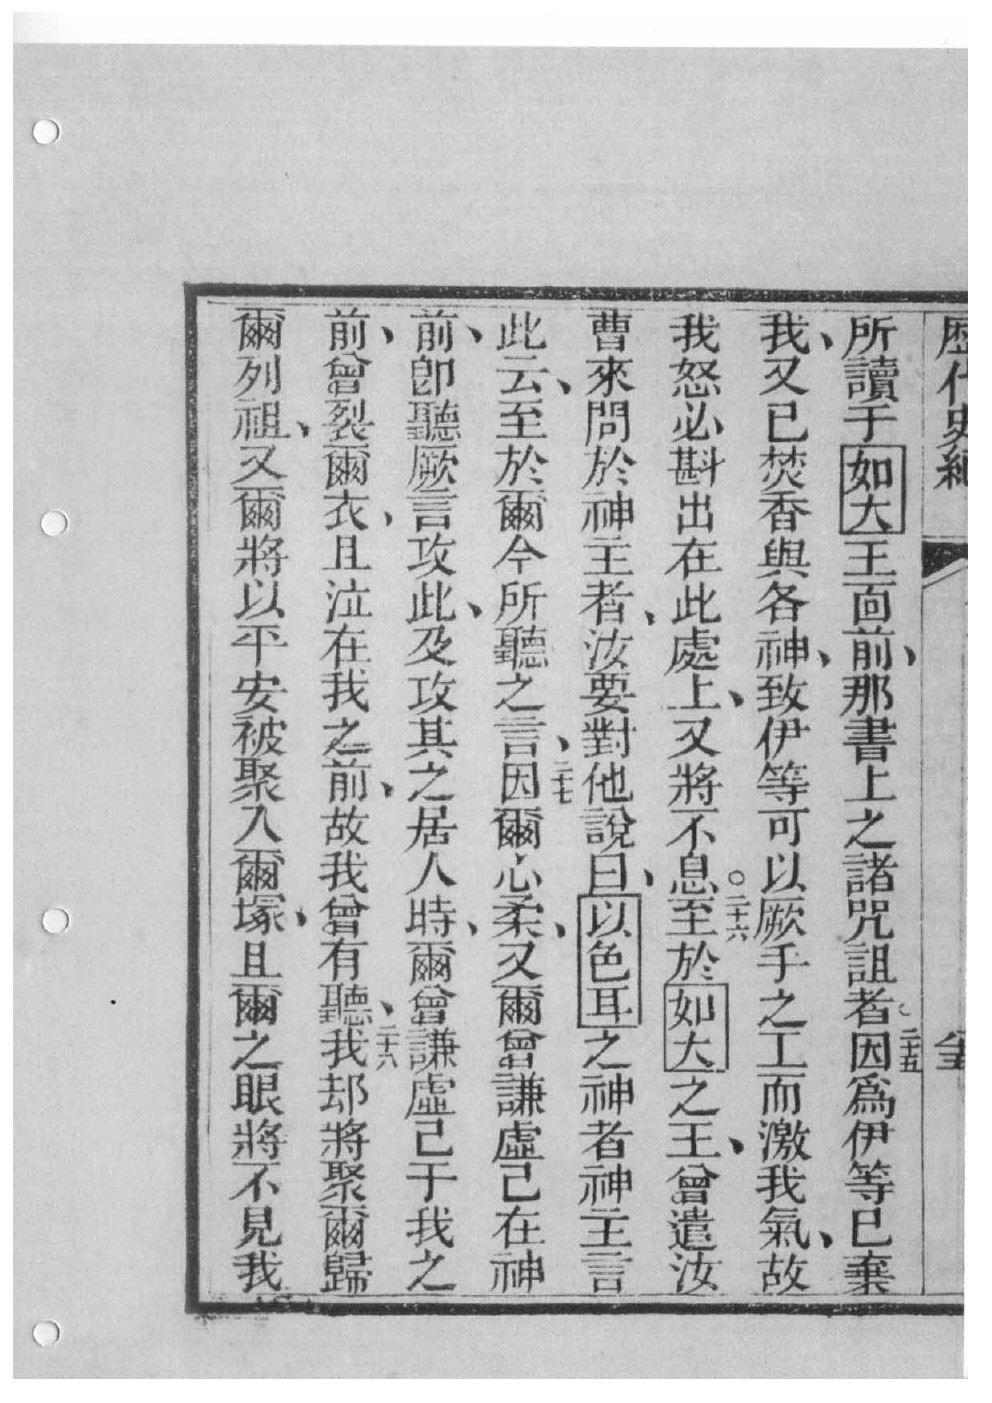 歷代史紀
所讀于如大王面前、那書上之諸咒詛者。二十五因爲伊等已棄
我、又已焚香與各神、致伊等可以厥手之工而激我氣、故
我怒必斟出在此處上、又將不息。二十六至於如大之王、曾遣汝
曹來問於神主者、汝要對他說曰、以色耳之神者神主言
此云、至於爾今所聽之言、二十七因爾心柔、又爾曾謙虛己在神
前、卽聽厥言攻此、及攻其之居人時、爾曾謙虛己于我之
前、曾裂爾衣、且泣在我之前、故我曾有聽、二十八我却將聚爾歸
爾列祖、又爾將以平安被聚入爾塚、且爾之眼將不見我